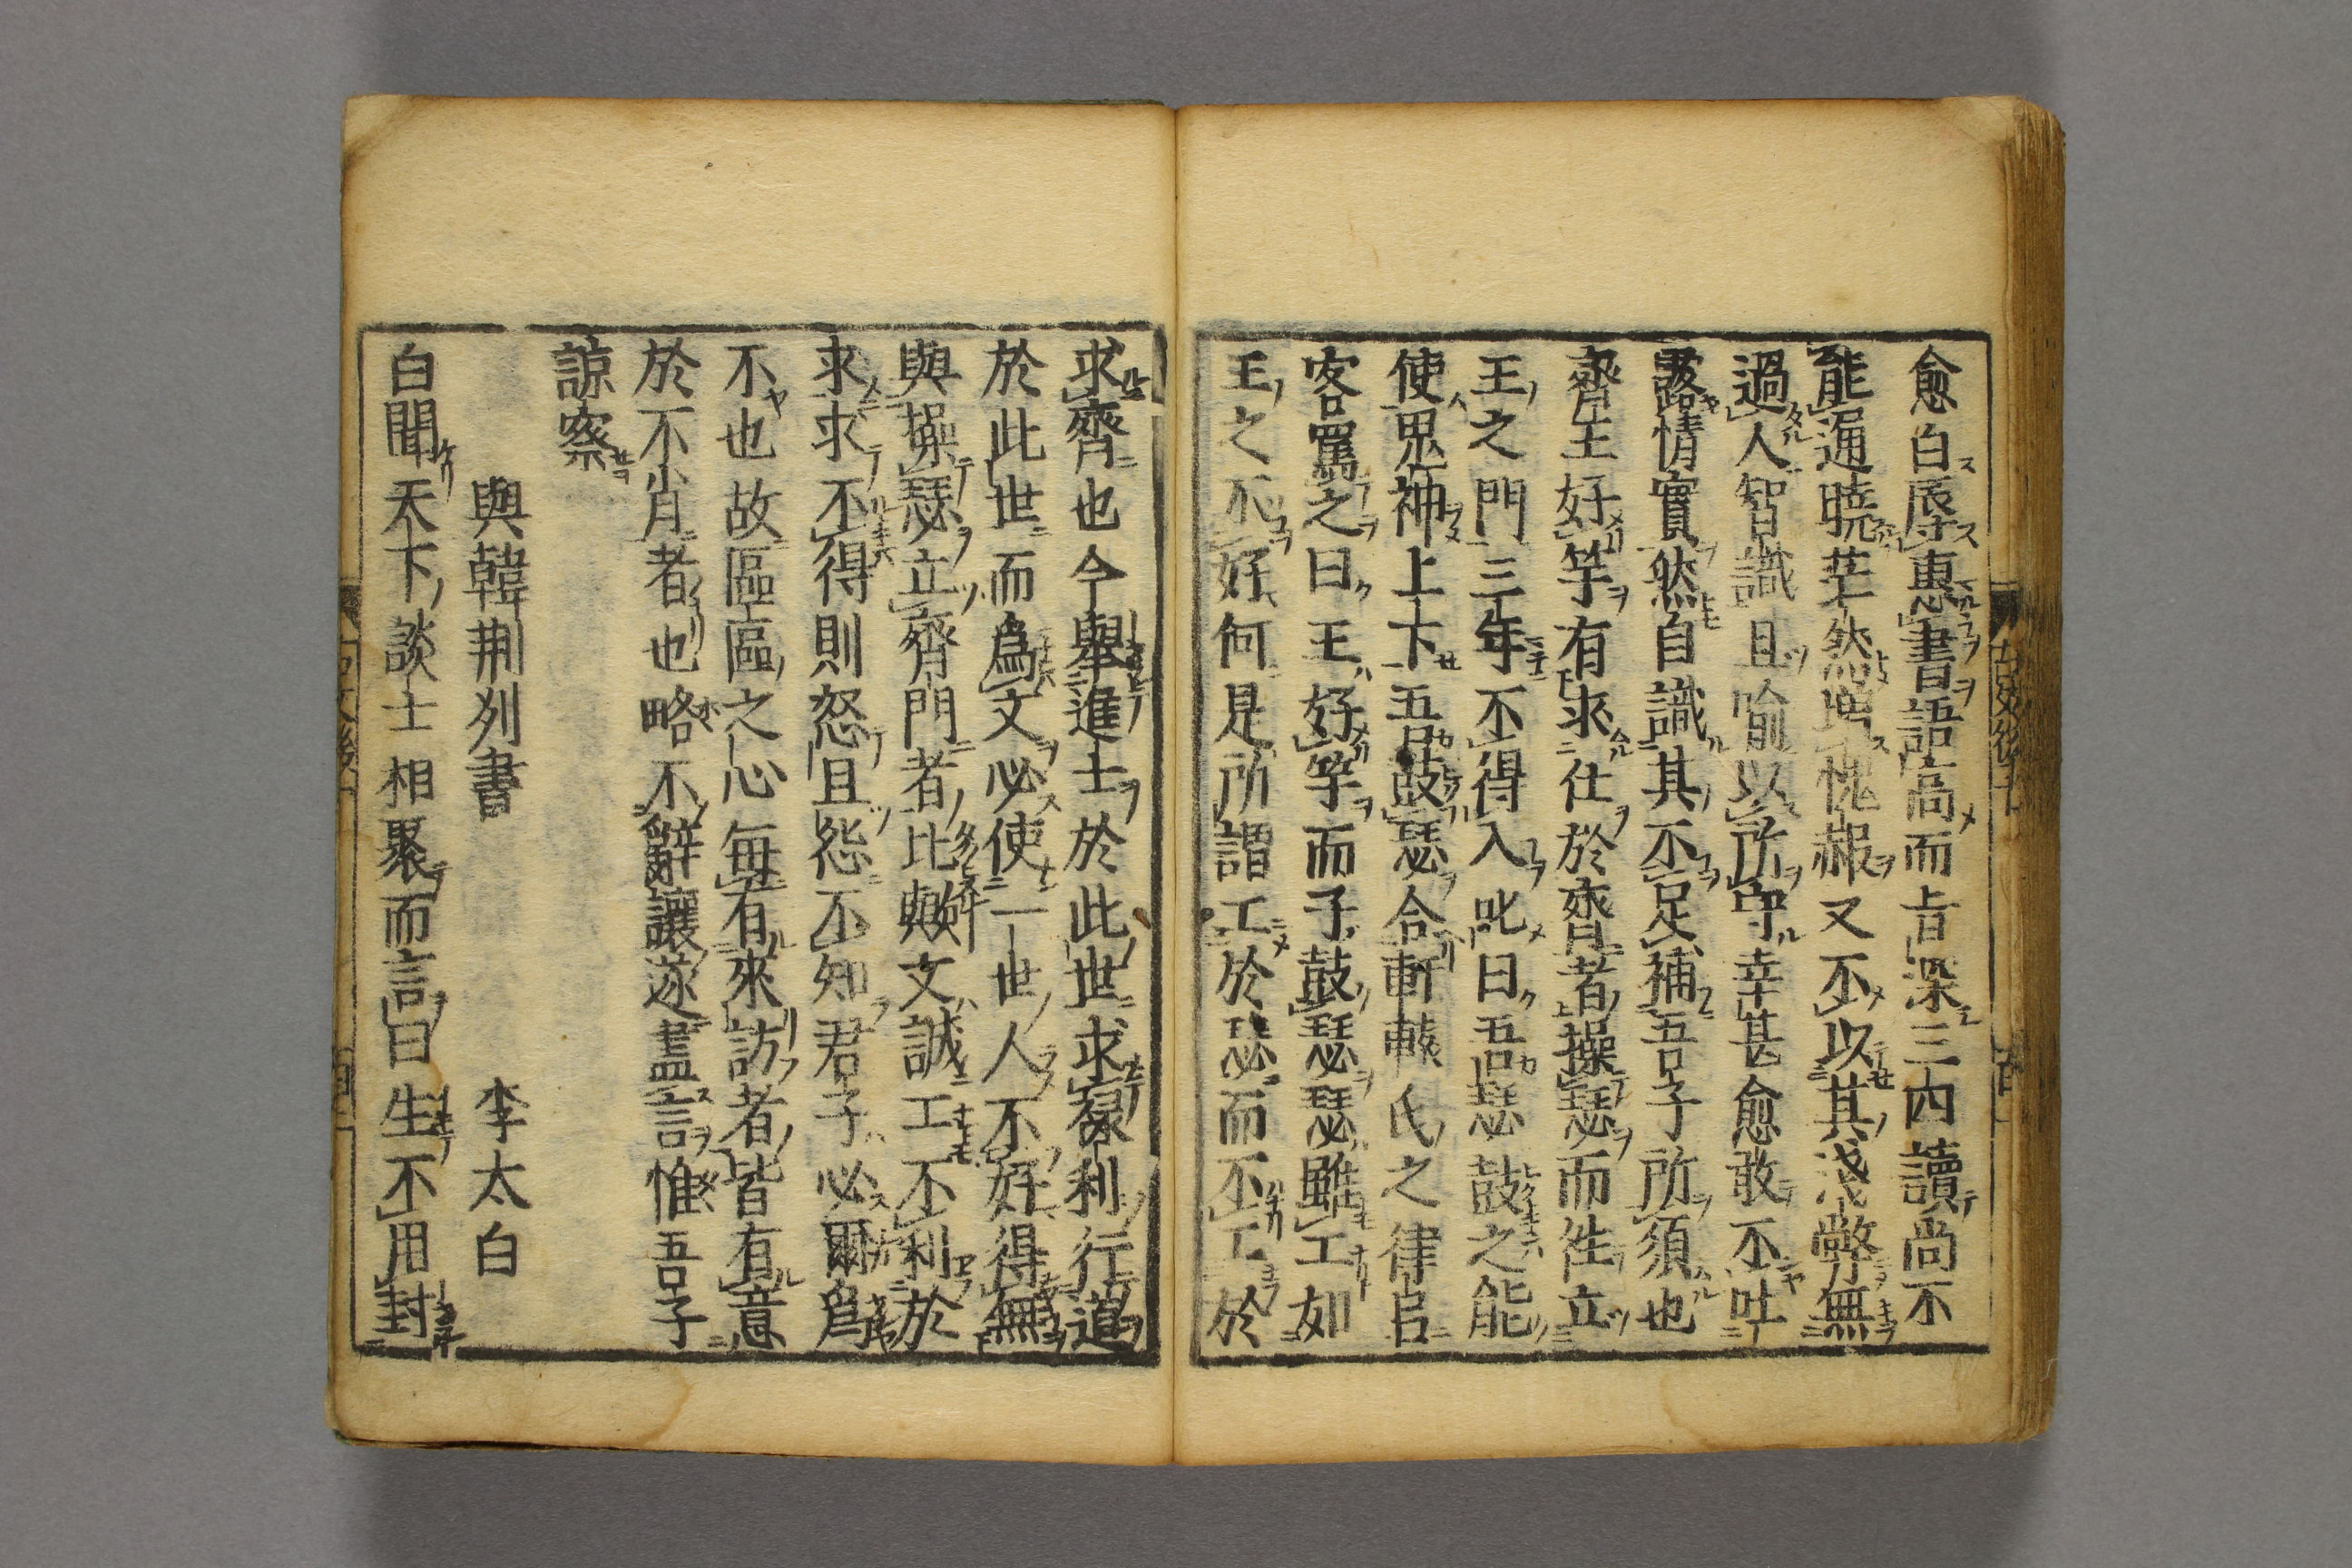 愈白辱惠書語高而旨深三四讀尚不
能通曉茫然增愧赧又不以其淺弊無
過人智識且喻以所守幸甚愈敢不吐
露情實然自識其不足補吾子所須也
齊王好竽有求仕於齊者操瑟而徃立
王之門三年不得入叱曰吾瑟鼓之能
使鬼神上下吾鼓瑟合軒轅氏之律呂
客罵之曰王好竽而子鼓瑟瑟雖工如
王之不好何是所謂工於瑟而不工於
求齊也今舉進士於此世求祿利行道
於此世而爲文必使一世人不好得無
與操瑟立齊門者比歟文誠工不利於
求求不得則怒且怨不知君子必爾爲
不也故區區之心每有來訪者皆有意
於不肖者也略不辭讓遂盡言惟吾子
諒察
與韓荆州書 李太白
白聞天下談士相聚而言曰生不用封